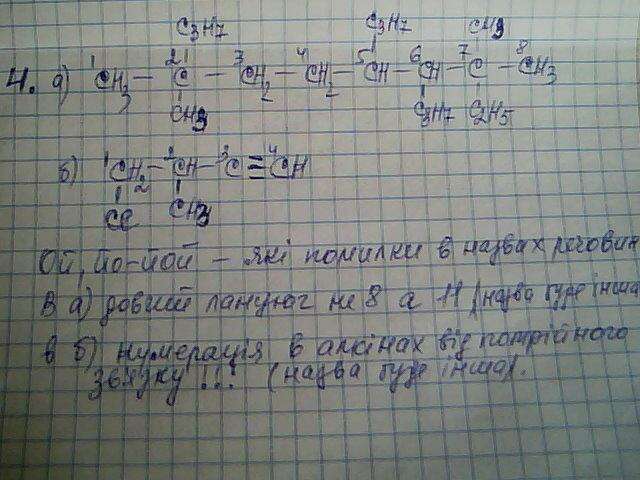 C3H7 C3H7 CH3
4. а) 1CH3 — 2C — 3CH2 — 4CH2 — 5CH — 6CH — 7C — 8CH3
CH3 C3H7 C2H5
б) 1CH2 — 2CH — 3C ≡ 4CH
Cl CH3
Ой, йо-йой — які помилки в назвах речовин
В а) довгий ланцюг не 8 а 11 (назва буде інша
в б) нумерація в алкінах від потрійного
звязку !!! (назва буде інша).